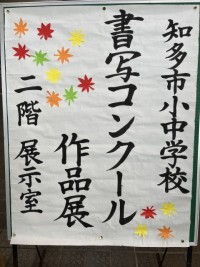 知多市小中学校
書写コンクール
作品展
二階 展示室